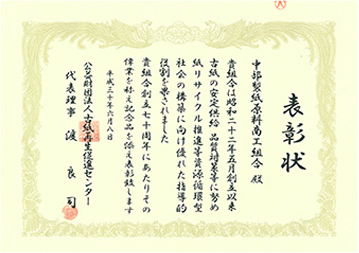 表彰状
中部製紙原料商工組合 殿
貴組合は昭和二十二年五月創立以来
古紙の安定供給 品質対策等に努め
紙リサイクル推進等資源循環型
社会の構築に向け優れた指導的
役割を果されました
貴組合創立七十周年にあたりその
偉業を称え記念品を添え表彰致します
平成三十年六月八日
公益財団法人古紙再生促進センター
代表理事 渡 良司